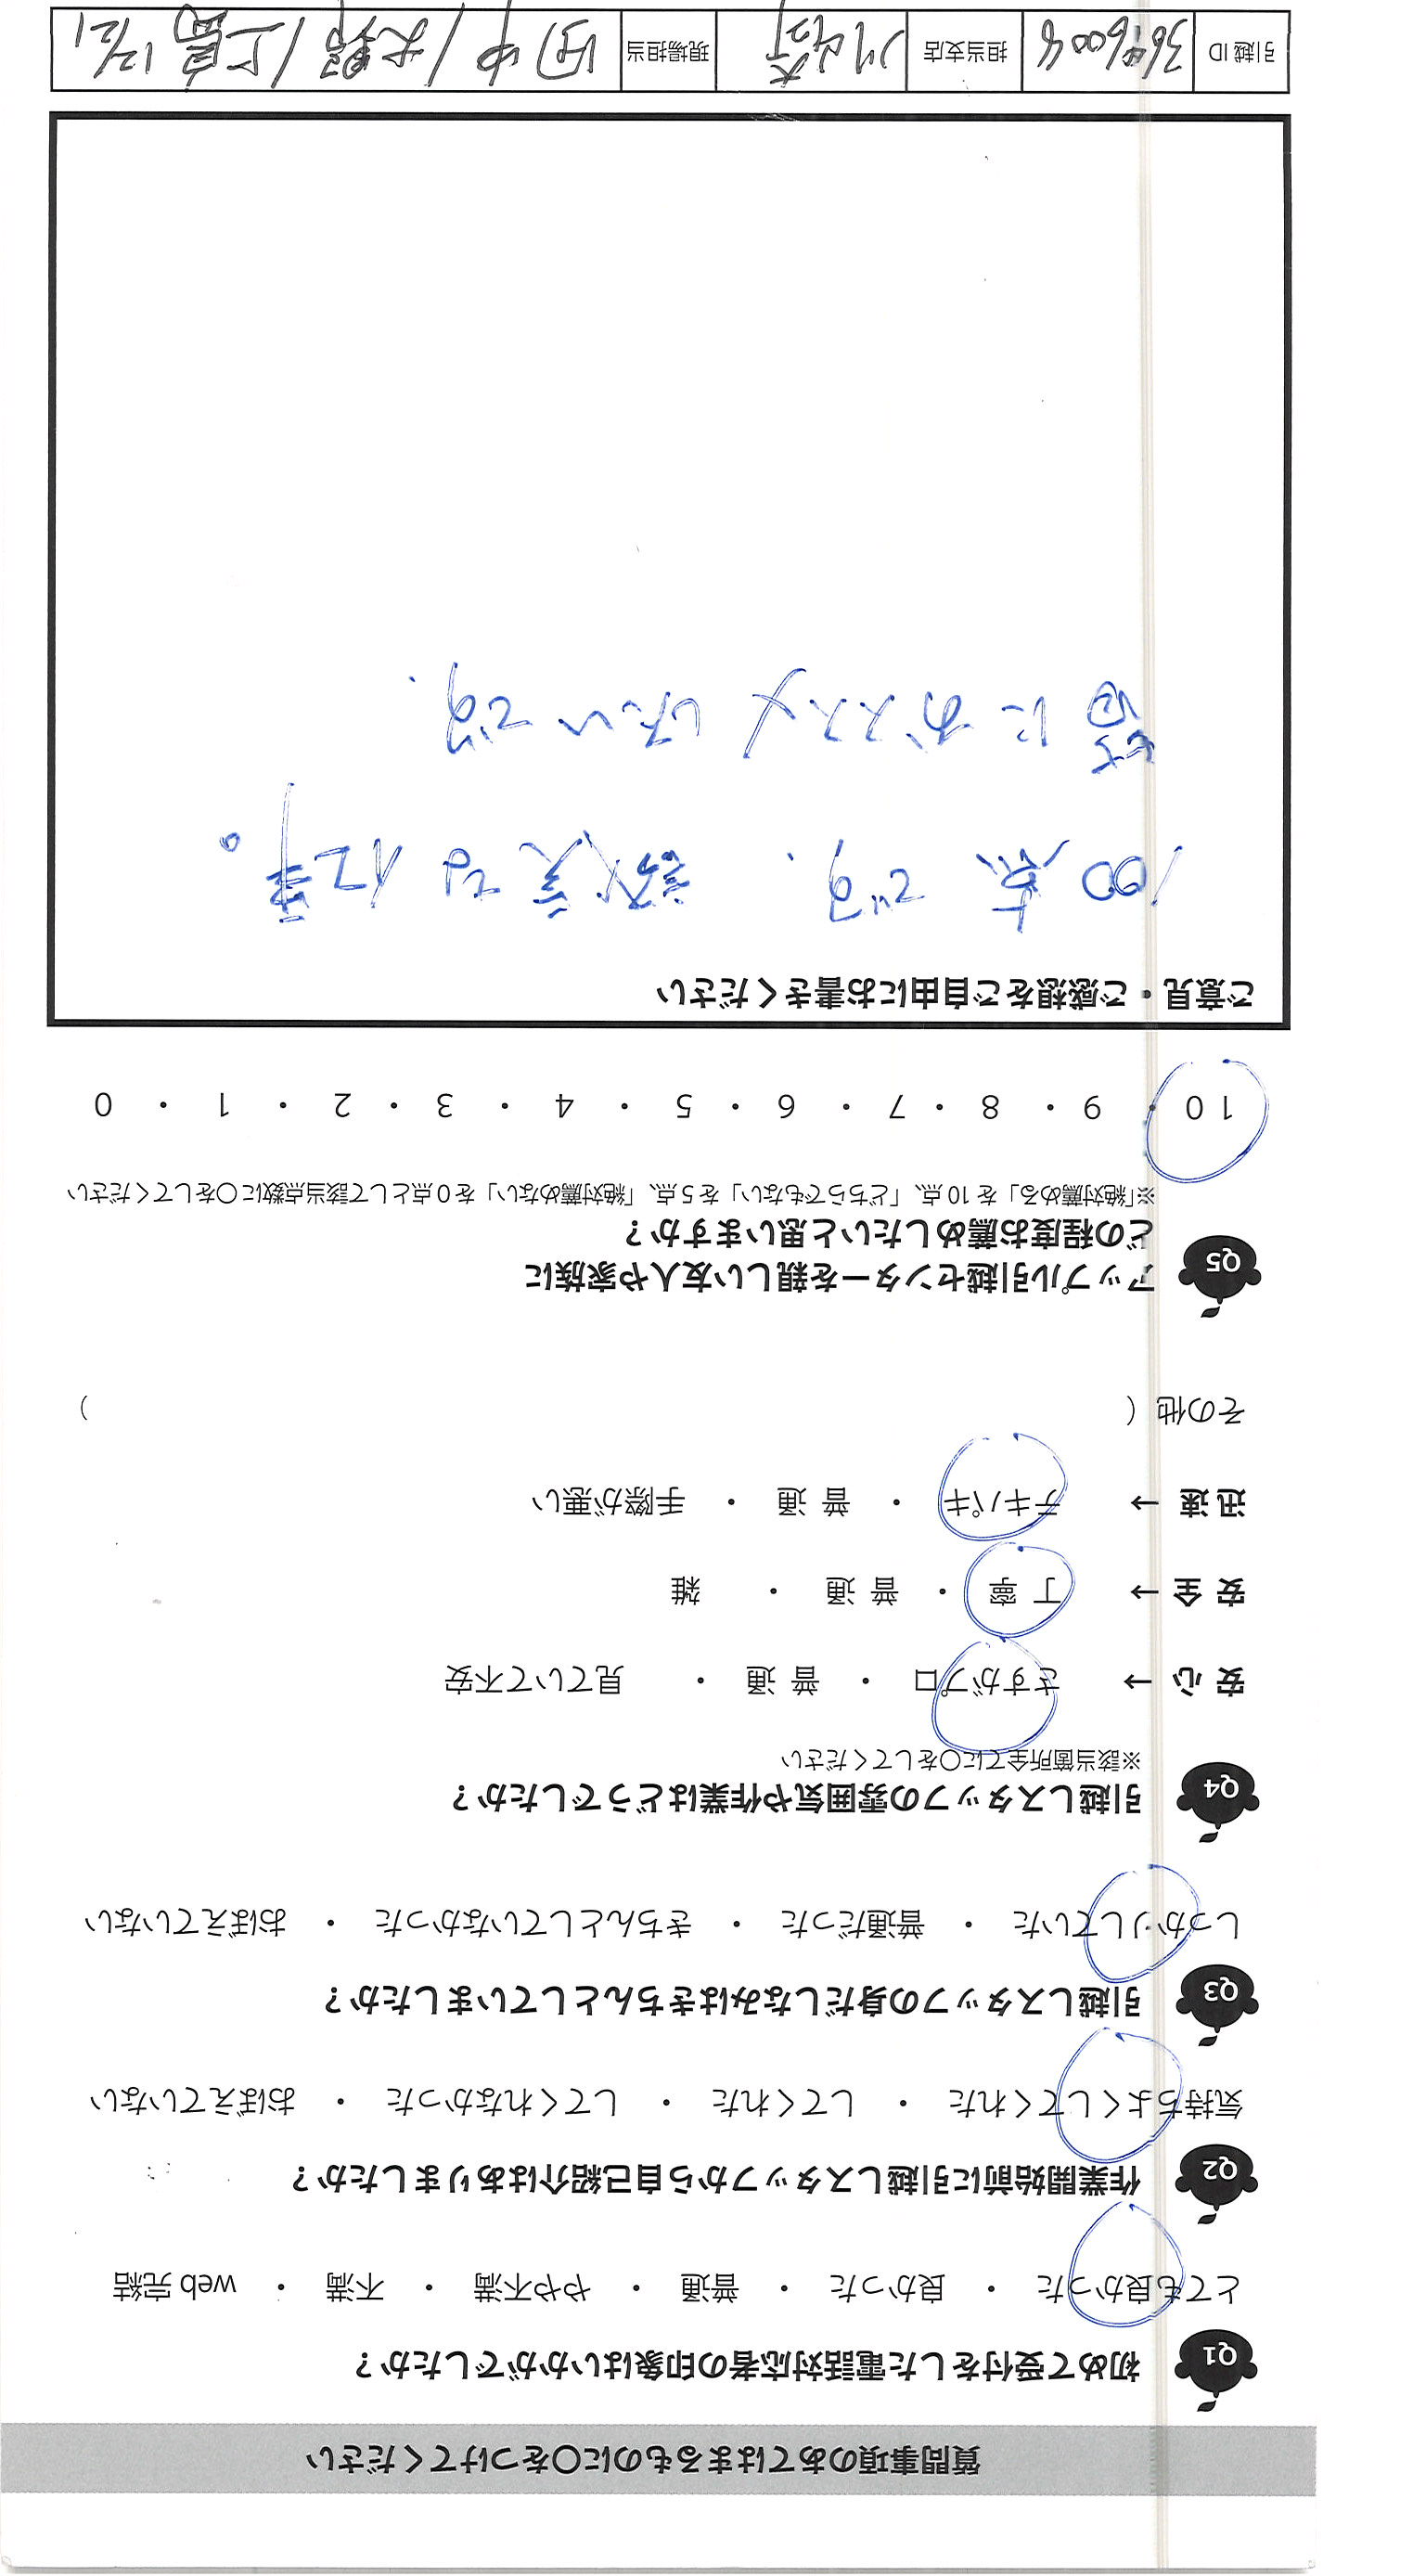 質問事項のあてはまるものに○をつけてください
Q1 初めて受付をした電話対応者の印象はいかがでしたか？
とても良かった ・ 良かった ・ 普通 ・ やや不満 ・ 不満 ・ web 完結
Q2 作業開始前に引越しスタッフから自己紹介はありましたか？
気持ちよくしてくれた ・ してくれた ・ してくれなかった ・ おぼえていない
Q3 引越しスタッフの身だしなみはきちんとしていましたか？
しっかりしていた ・ 普通だった ・ きちんとしていなかった ・ おぼえていない
Q4 引越しスタッフの雰囲気や作業はどうでしたか？
※該当箇所全てに○をしてください
安心 → さすがプロ ・ 普通 ・ 見ていて不安
安全 → 丁寧 ・ 普通 ・ 雑
迅速 → テキパキ ・ 普通 ・ 手際が悪い
その他（ ）
Q5 アップル引越センターを親しい友人や家族に
どの程度お薦めしたいと思いますか？
※「絶対薦める」を 10 点、「どちらでもない」を 5 点、「絶対薦めない」を 0 点として該当点数に○をしてください
10 ・ 9 ・ 8 ・ 7 ・ 6 ・ 5 ・ 4 ・ 3 ・ 2 ・ 1 ・ 0
ご意見・ご感想をご自由にお書きください
100点です. 誠実な仕事。
皆にオススメしたいです.
引越 ID 担当支店 川崎 現場担当 田中/大野/上島 12/21